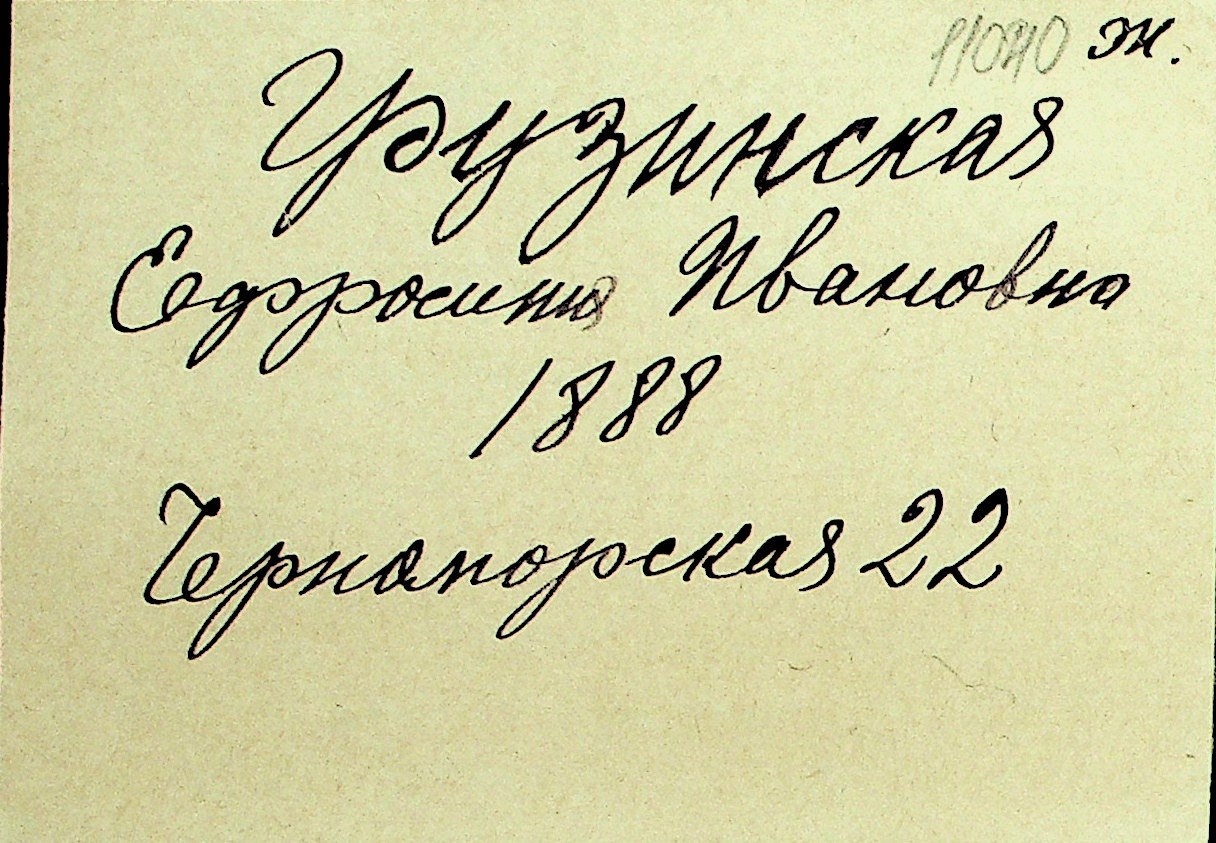 11040 ж.
Грузинская
Ефросиния Ивановна
1888
Черноморская 22